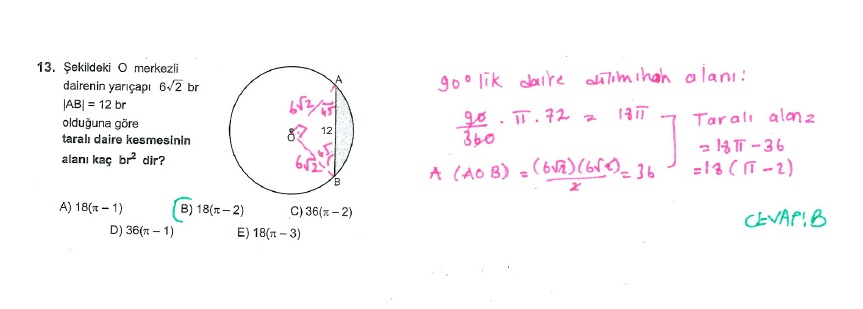 13. Şekildeki O merkezli
dairenin yarıçapı 6√2 br
|AB| = 12 br
olduğuna göre
taralı daire kesmesinin
alanı kaç br² dir?
A
6√2
45
O
12
45
6√2
B
A) 18(π – 1)
B) 18(π – 2)
C) 36(π – 2)
D) 36(π – 1)
E) 18(π – 3)
90° lik daire diliminin alanı:
90/360 . π . 72 = 18π
A (AOB) = (6√2)(6√2)/2 = 36
Taralı alan =
= 18π – 36
= 18 (π – 2)
CEVAP: B